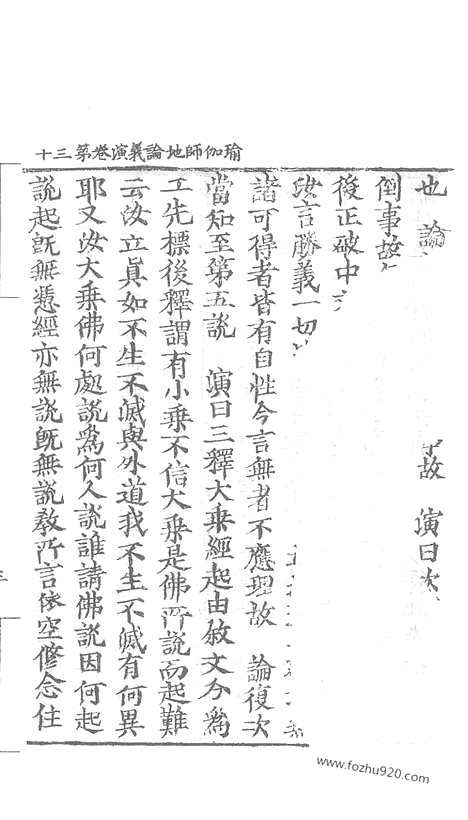 瑜伽師地論義演卷第三十
也　論
事故　演曰次
倒事故
後正破中
汝言勝義一切
諸可得者皆有自性今言無者不應理故　論復次
當知至第五說　演曰三釋大乗經起由敘文今爲
二先標後釋謂有小乗不信大乗是佛所說而起難
云汝立眞如不生不滅與外道我不生不滅有何異
耶又汝大乗佛何處說爲何人說誰請佛說因何起
說起旣無憑經亦無說旣無說教所言依空修念住
www.fozhu920.com